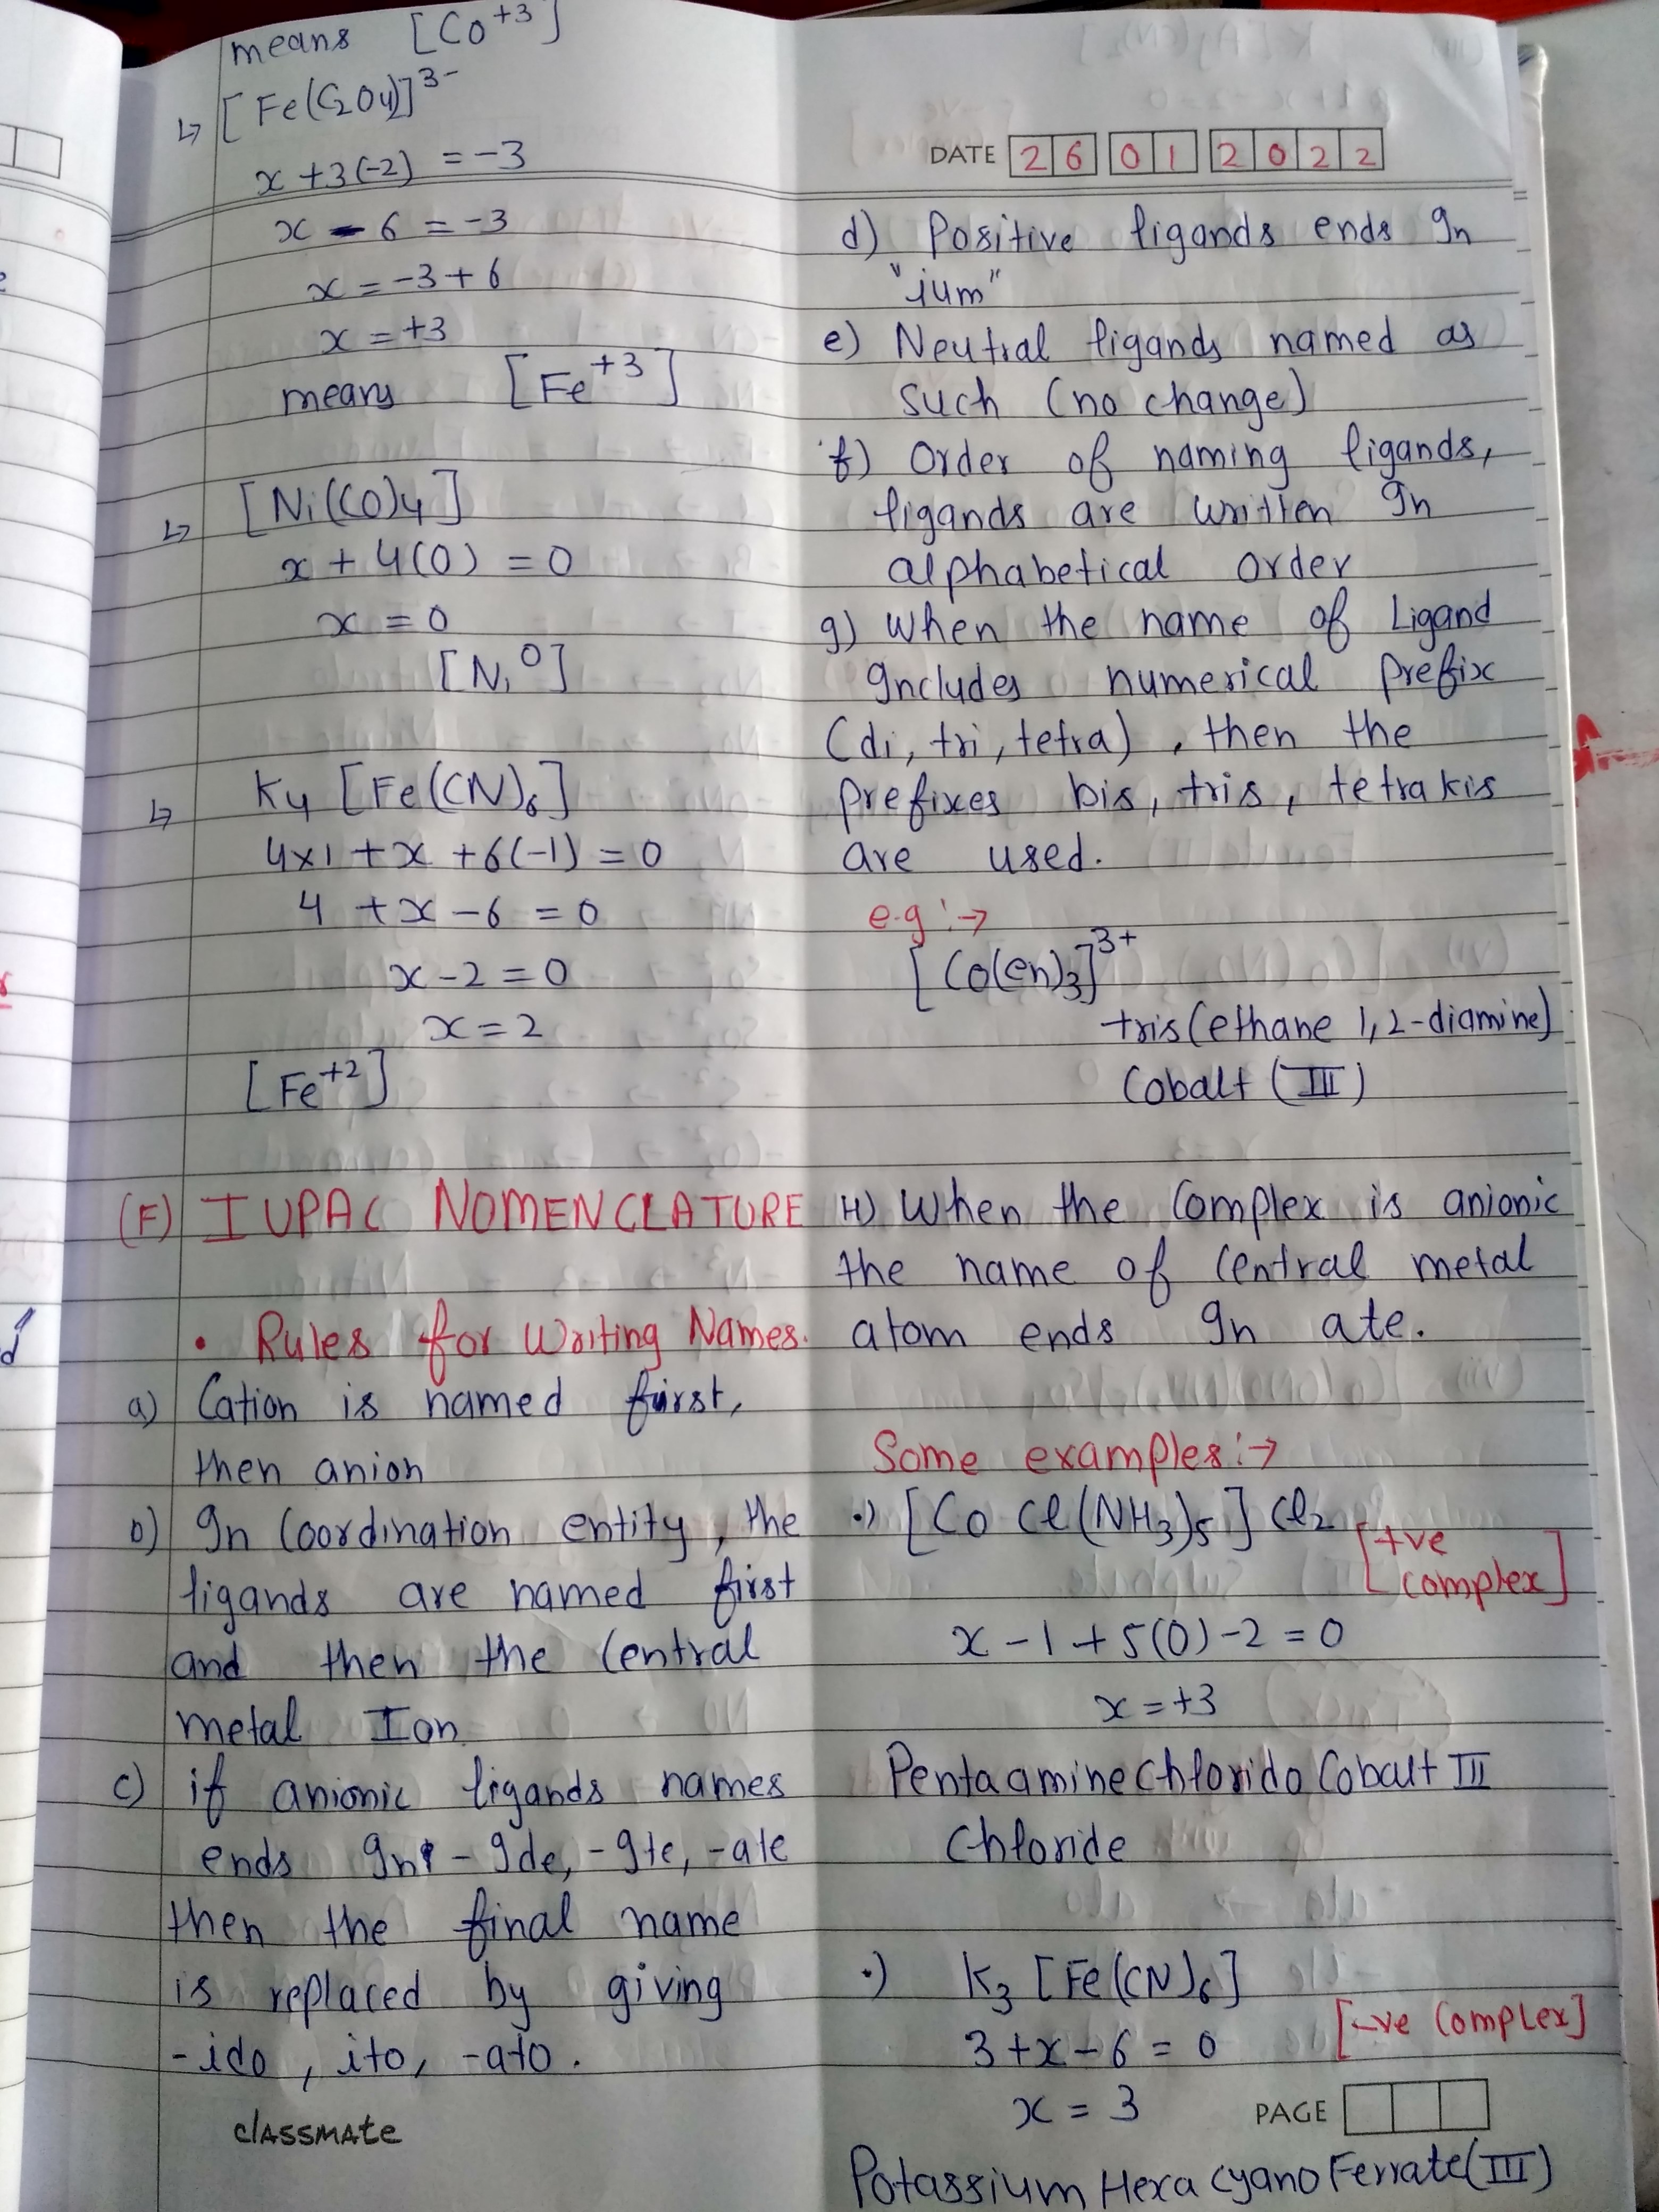 means [Co⁺³]
↳ [Fe(C₂O₄)]³⁻
x + 3(-2) = -3
x - 6 = -3
x = -3 + 6
x = +3
means [Fe⁺³]
↳ [Ni(CO)₄]
x + 4(0) = 0
x = 0
[Ni⁰]
↳ K₄ [Fe(CN)₆]
4×1 + x + 6(-1) = 0
4 + x - 6 = 0
x - 2 = 0
x = 2
[Fe⁺²]
(F) IUPAC NOMENCLATURE
• Rules for Writing Names.
a) Cation is named first,
then anion
b) In Coordination entity, the
ligands are named first
and then the Central
metal Ion
c) if anionic ligands names
ends In - Ide, -Ite, -ate
then the final name
is replaced by giving
-ido, ito, -ato.
classmate
DATE 26 01 2022
d) Positive ligands ends In
"ium"
e) Neutral ligands named as
such (no change)
f) Order of naming ligands,
ligands are written In
alphabetical order
g) When the name of Ligand
Includes numerical prefix
(di, tri, tetra), then the
prefixes bis, tris, tetrakis
are used.
e.g :→
[Co(en)₃]³⁺
tris(ethane 1,2-diamine)
Cobalt (III)
H) When the Complex is anionic
the name of Central metal
atom ends In ate.
Some examples :→
•) [Co Cl(NH₃)₅] Cl₂ [+ve
complex]
x - 1 + 5(0) - 2 = 0
x = +3
Pentaamine Chlorido Cobalt III
Chloride
•) K₃ [Fe(CN)₆]
[-ve Complex]
3 + x - 6 = 0
x = 3
PAGE
Potassium Hexa Cyano Ferrate(III)